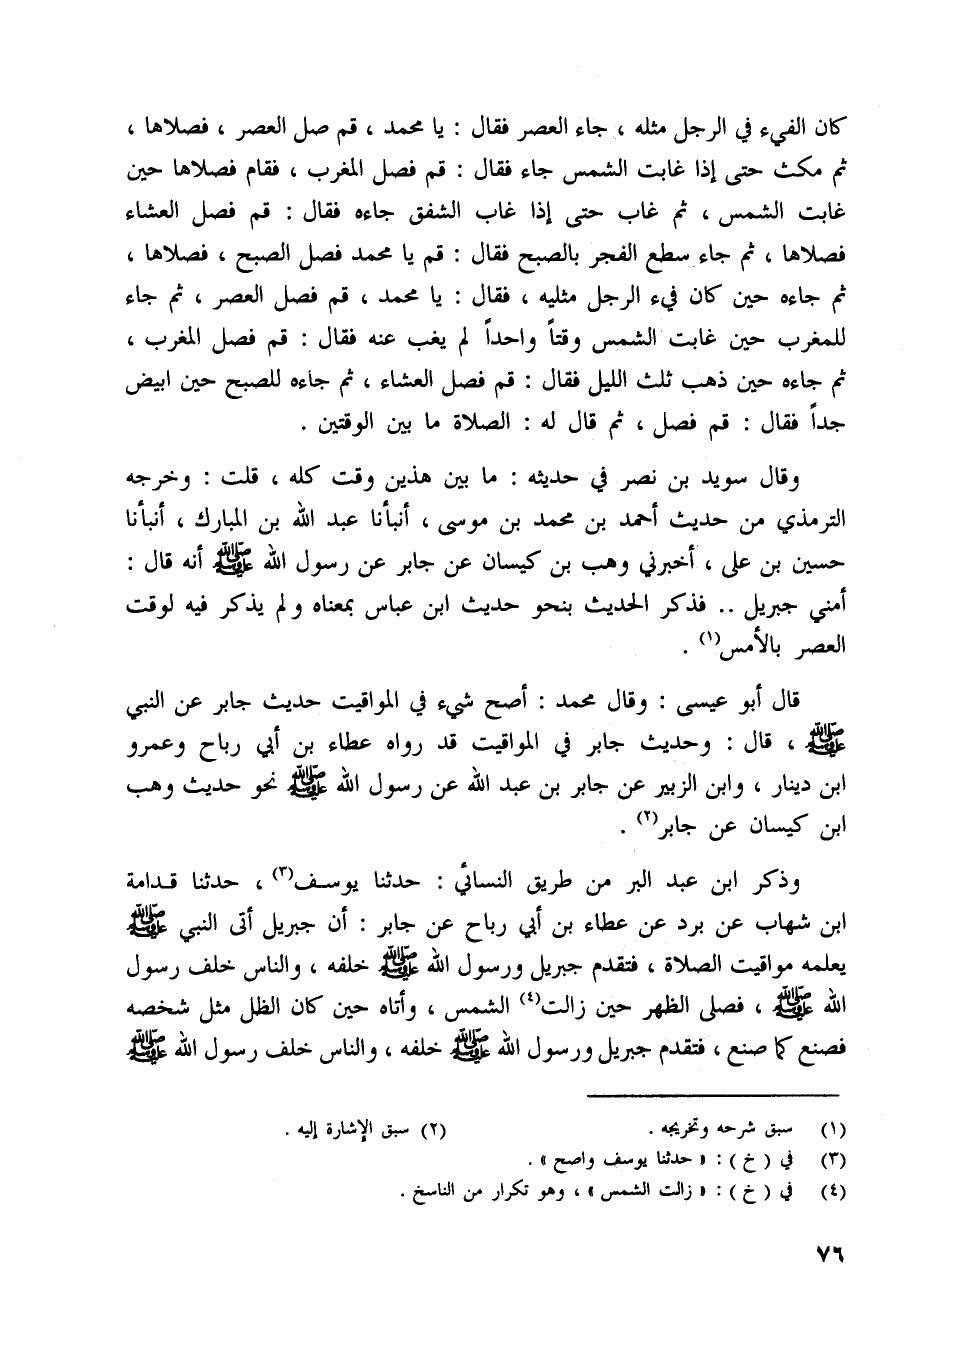 كان الفيء في الرجل مثله ، جاء العصر فقال : يا محمد ، قم صل العصر ، فصلاها ،
ثم مكث حتى إذا غابت الشمس جاء فقال : قم فصل المغرب ، فقام فصلاها حين
غابت الشمس ، ثم غاب حتى إذا غاب الشفق جاءه فقال : قم فصل العشاء
فصلاها ، ثم جاء سطع الفجر بالصبح فقال : قم يا محمد فصل الصبح ، فصلاها ،
ثم جاءه حين كان فيء الرجل مثليه ، فقال : يا محمد ، قم فصل العصر ، ثم جاء
للمغرب حين غابت الشمس وقتاً واحداً لم يغب عنه فقال : قم فصل المغرب ،
ثم جاءه حين ذهب ثلث الليل فقال : قم فصل العشاء ، ثم جاءه للصبح حين ابيض
جداً فقال : قم فصل ، ثم قال له : الصلاة ما بين الوقتين .
وقال سويد بن نصر في حديثه : ما بين هذين وقت كله ، قلت : وخرجه
الترمذي من حديث أحمد بن محمد بن موسى ، أنبأنا عبد الله بن المبارك ، أنبأنا
حسين بن على ، أخبرني وهب بن كيسان عن جابر عن رسول الله ﷺ أنه قال :
أمني جبريل .. فذكر الحديث بنحو حديث ابن عباس بمعناه ولم يذكر فيه لوقت
العصر بالأمس(١) .
قال أبو عيسى : وقال محمد : أصح شيء في المواقيت حديث جابر عن النبي
ﷺ ، قال : وحديث جابر في المواقيت قد رواه عطاء بن أبي رباح وعمرو
ابن دينار ، وابن الزبير عن جابر بن عبد الله عن رسول الله ﷺ نحو حديث وهب
ابن كيسان عن جابر(٢) .
وذكر ابن عبد البر من طريق النسائي : حدثنا يوسف(٣) ، حدثنا قدامة
ابن شهاب عن برد عن عطاء بن أبي رباح عن جابر : أن جبريل أتى النبي ﷺ
يعلمه مواقيت الصلاة ، فتقدم جبريل ورسول الله ﷺ خلفه ، والناس خلف رسول
الله ﷺ ، فصلى الظهر حين زالت(٤) الشمس ، وأتاه حين كان الظل مثل شخصه
فصنع كما صنع ، فتقدم جبريل ورسول الله ﷺ خلفه ، والناس خلف رسول الله ﷺ
(١) سبق شرحه وتخريجه . (٢) سبق الإشارة إليه .
(٣) في ( خ ) : « حدثنا يوسف واصح » .
(٤) في ( خ ) : « زالت الشمس » ، وهو تكرار من الناسخ .
٧٦